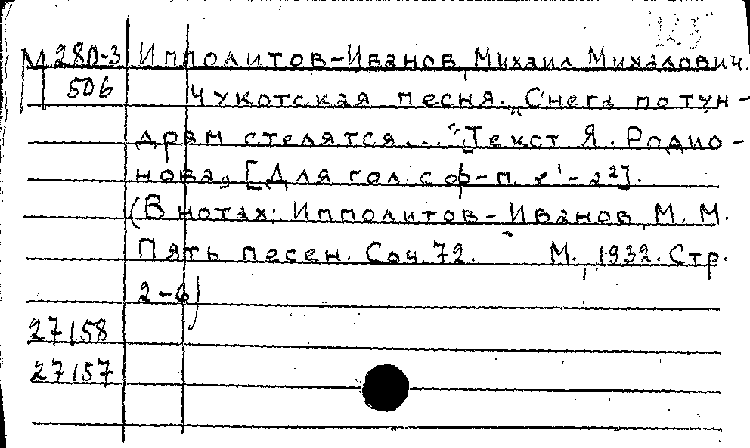 М 280-3 Ипполитов-Иванов, Михаил Михалович.
506 Чукотская песня. "Снега по тун-
драм стелятся..." Текст Я. Родио-
нова, [Для гол. с ф-п. е¹-а²].
(В нотах: Ипполитов-Иванов, М. М.
Пять песен. Соч. 72. М., 1932. Стр.
2-6)
27158
27157